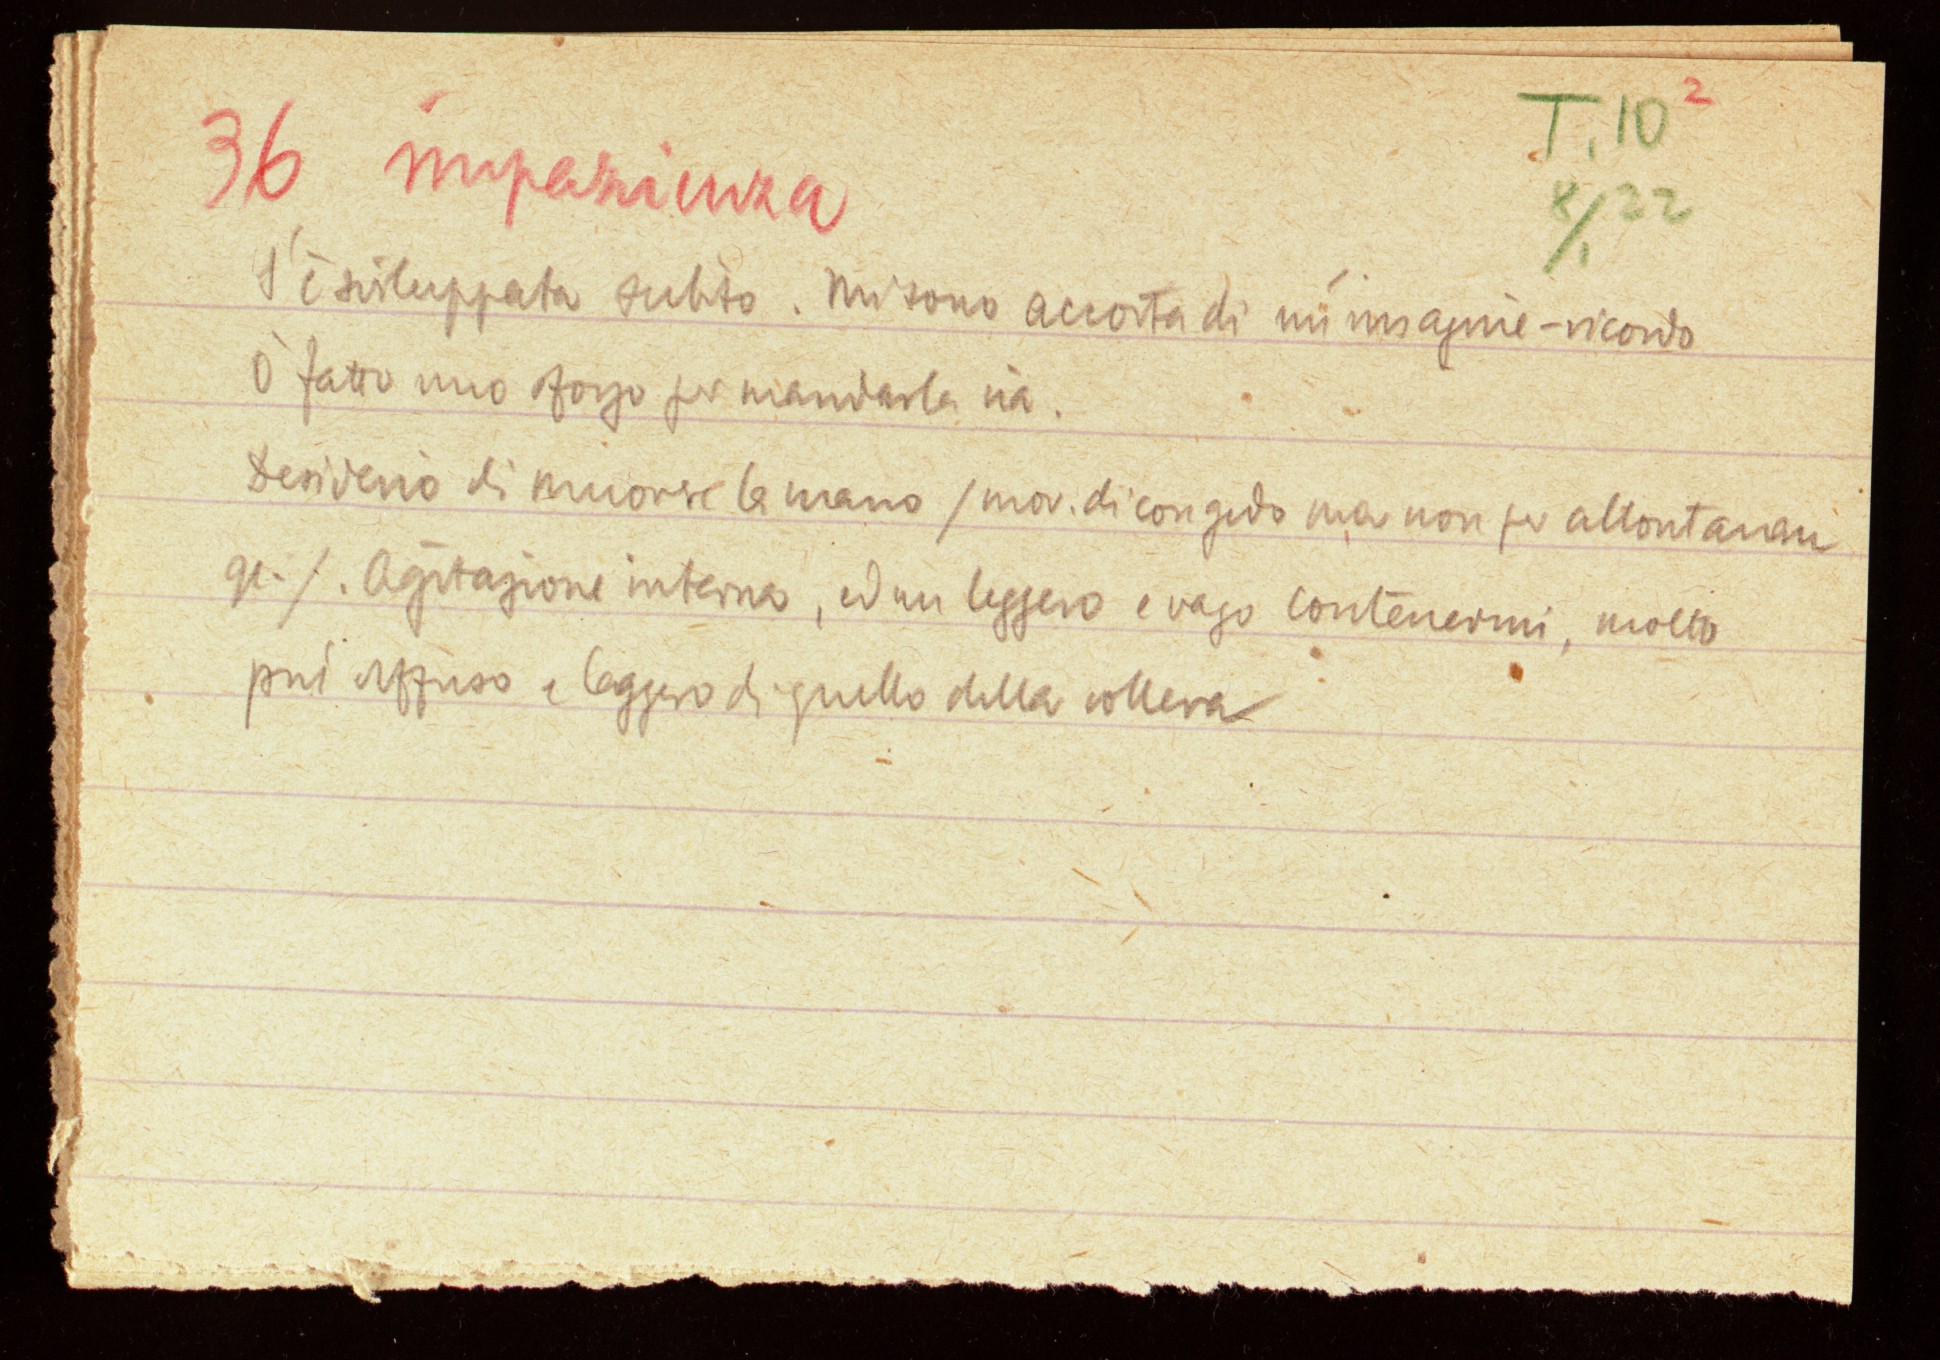 T. 10 2
8/1 22
36 impazienza
S'è sviluppata subito. Mi sono accorta di un'imagine-ricordo
Ò fatto uno sforzo per mandarla via.
Desiderio di muovere la mano /mov. di congedo ma non per allontanar
ge./. Agitazione interna, ed un leggero e vago contenermi, molto
più diffuso e leggero di quello della collera